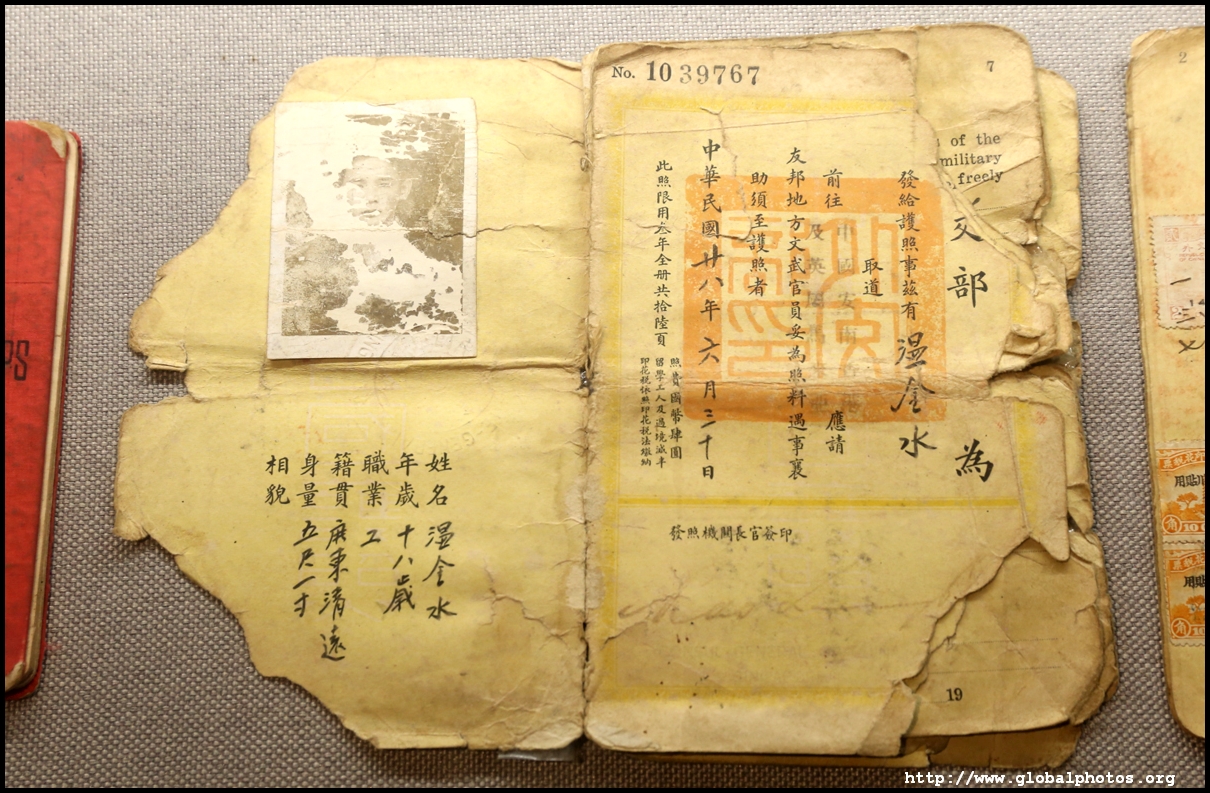 PS
姓名 温金水
年歲 十八歲
職業 工
籍貫 廣東清遠
身量 五尺一寸
相貌
No. 1039767
交部 為
發給護照事茲有 温金水
前往
取道
應請
友邦地方文武官員妥為照料遇事襄
助須至護照者
中華民國廿八年六月三十日
此照限用叁年全册共拾陸頁
照費國幣肆圓
留學工人及過境減半
印花稅依照印花稅法繳納
發照機關長官簽印
7
of the
military
freely
19
2
用貼
角 10
用貼
角 10
http://www.globalphotos.org